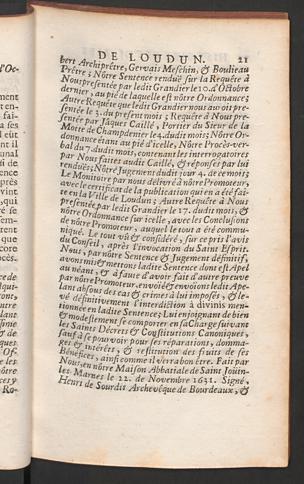 DE LOUDUN. 21
bert Archiprêtre, Gervais Meschin, & Boulieau
Prêtre; Nôtre Sentence rendue sur la Requête à
Nous présentée par ledit Grandier le 10. d'Octobre
dernier, au pié de laquelle est nôtre Ordonnance;
Autre Requête que ledit Grandier nous avoit pre-
sentée le 3. du present mois; Requête à Nous pre-
sentée par Jaques Caillé, Portier du Sieur de la
Motte de Champdenier le 4. dudit mois; Nôtre Or-
donnance étant au pié d'icelle, Nôtre Procès-ver-
bal du 7. dudit mois, contenant les interrogatoires
par Nous faites audit Caillé, & réponses par lui
rendues; Nôtre Jugement dudit jour 4. de ce mois;
Le Monitoire par nous délivré à nôtre Promoteur,
avec le certificat de la publication qui en a été fai-
te en la Ville de Loudun; Autre Requête à Nous
presentée par ledit Grandier le 17. dudit mois, &
nôtre Ordonnance sur icelle, avec les Conclusions
de nôtre Promoteur, auquel le tout a été commu-
niqué. Le tout vû & considéré, sur ce pris l'avis
du Conseil, après l'invocation du Saint Esprit.
Nous, par nôtre Sentence & Jugement définitif,
avons mis & mettons ladite Sentence dont est Apel
au néant, & à faute d'avoir fait d'autre preuve
par nôtre Promoteur, envoié & envoions ledit Ape-
lant absous des cas & crimes à lui imposés, & le-
vé définitivement l'interdiction à divinis men-
tionnée en ladite Sentence; Lui enjoignant de bien
& modestement se comporter en sa Charge suivant
les Saints Décrets & Constitutions Canoniques,
sauf à se pourvoir pour ses réparations, domma-
ges & intérêts, & restitution des fruits de ses
Bénéfices, ainsi comme il verra bon être. Fait par
Nous, en nôtre Maison Abbatiale de Saint Jouin-
les Marnes le 22. de Novembre 1631. Signé,
Henri de Sourdit Archevêque de Bordeaux, &